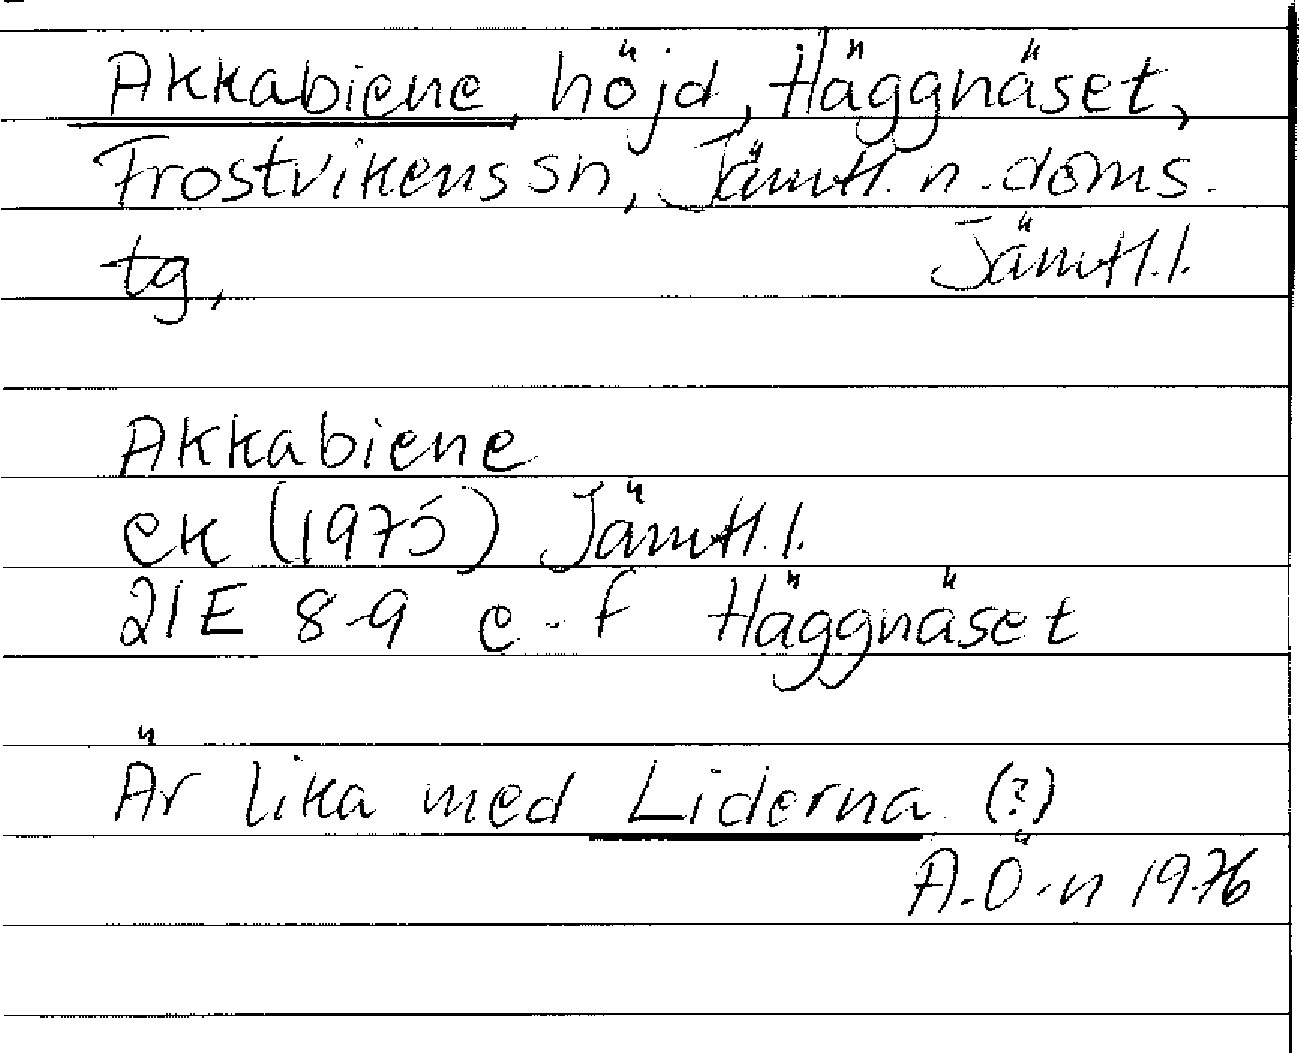 Akkabiene, höjd, Häggnäset,
Frostvikens sn, Jämtl. n. doms.
tg, Jämtl. l.
Akkabiene
ek (1975) Jämtl. l.
21E 8-9 e-f Häggnäset
Är lika med Liderna (?)
A.Ö-n 1976